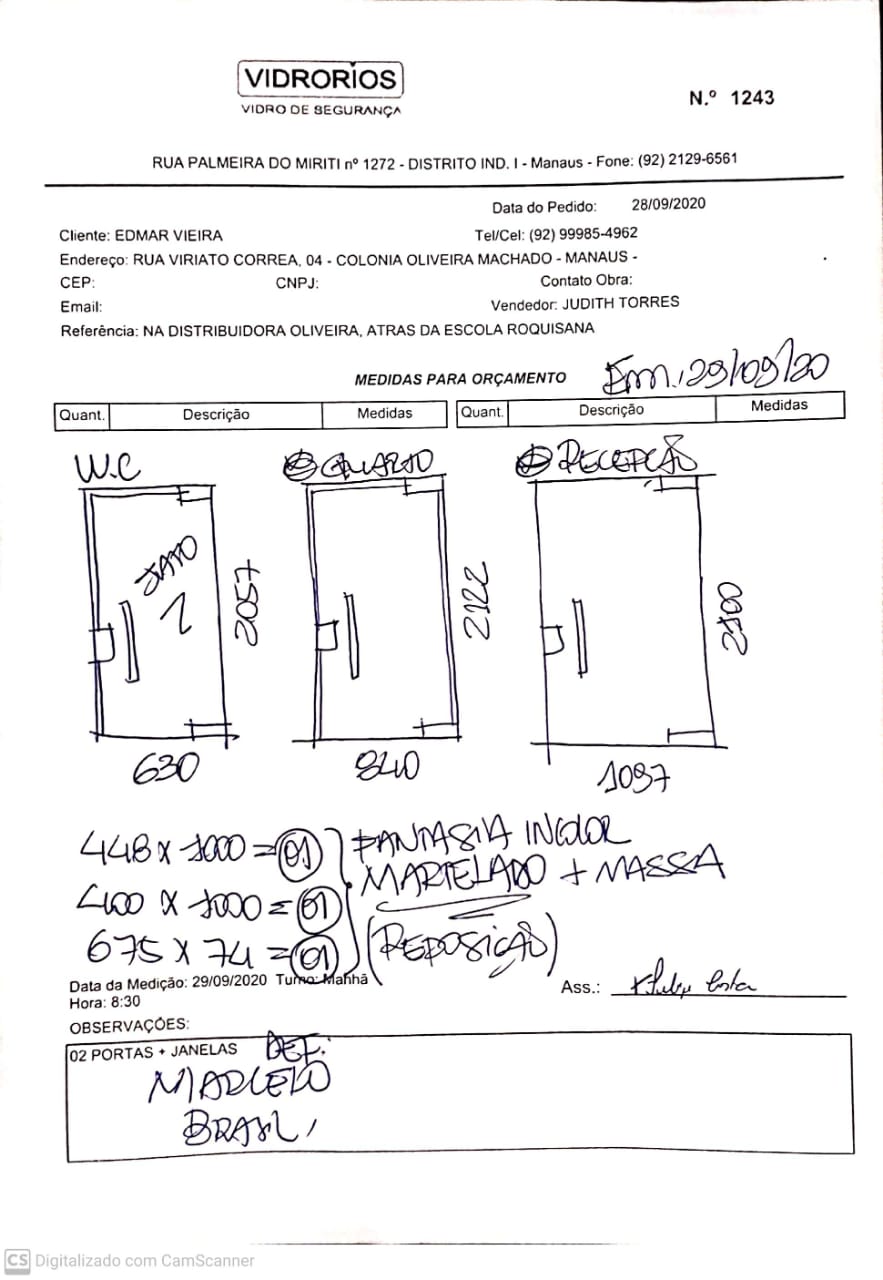 VIDRORIOS
VIDRO DE SEGURANÇA
N.º 1243
RUA PALMEIRA DO MIRITI nº 1272 - DISTRITO IND. I - Manaus - Fone: (92) 2129-6561
Data do Pedido: 28/09/2020
Cliente: EDMAR VIEIRA Tel/Cel: (92) 99985-4962
Endereço: RUA VIRIATO CORREA, 04 - COLONIA OLIVEIRA MACHADO - MANAUS -
CEP: CNPJ: Contato Obra:
Email: Vendedor: JUDITH TORRES
Referência: NA DISTRIBUIDORA OLIVEIRA, ATRAS DA ESCOLA ROQUISANA
MEDIDAS PARA ORÇAMENTO Em: 29/09/20
Quant. Descrição Medidas Quant. Descrição Medidas
W.C QUARTO RECEPÇÃO
JATO
1
2057 2122 2100
630 840 1097
448 x 1000 = 01 FANTASIA INCOLOR
MARTELADO + MASSA
400 x 1000 = 01
675 x 74 = 01 (REPOSIÇÃO)
Data da Medição: 29/09/2020 Turno: Manhã Ass.:
Hora: 8:30
OBSERVAÇÕES:
02 PORTAS + JANELAS DEF.
MARCELO
BRASIL
CS Digitalizado com CamScanner